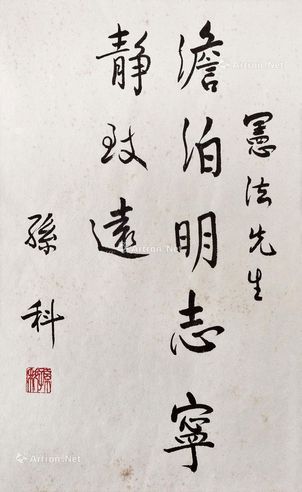 憲法先生
澹泊明志寧
静致遠
孫科
孫科
Artron.Net
Artron.Net
Artron.Net